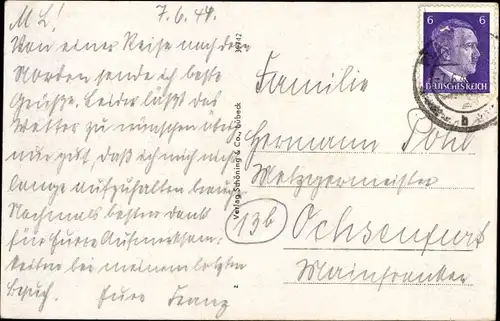 M. L.! 7.6.44.
Von einer Reise nach dem
Norden sende ich beste
Grüße. Leider läßt das
Wetter zu wünschen über
nur gut, daß ich mich nicht
lange aufzuhalten brauch
Nochmals besten Dank
für Eure Aufmerksam-
keiten bei meinem letzten
Besuch. Eure Franz
Verlag Schöning & Co., Lübeck
2
6 6
DEUTSCHES REICH
b
Familie
Hermann Pohl
Metzgermeister
13b Ochsenfurt
Mainfranken